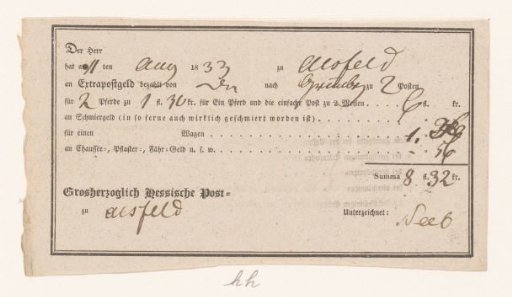 Der Herr
hat am 11 ten Aug 1833 zu Alsfeld
an Extrapostgeld bezahlt von nach zu 2 Posten
für 2 Pferde zu 1 fl. 30 kr. für Ein Pferd und die einfache Post zu 2 Meilen . . . 6 fl. kr.
an Schmiergeld (in so ferne auch wirklich geschmiert worden ist) . . . .
für einen Wagen . . . . . . . 1. 36
an Chaussee-, Pflaster-, Fähr-Geld u. s. w. . . . . . . . . . - 56
Summa 8 fl. 32 kr.
Grosherzoglich Hessische Post-
zu Alsfeld Unterzeichnet:
Neeb
hh